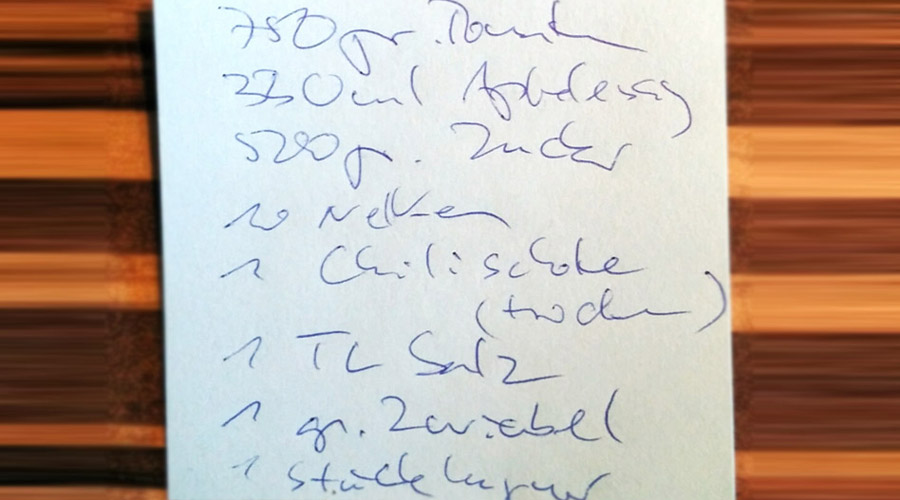 750 gr. Tomaten
330 ml Apfelessig
520 gr. Zucker
10 Nelken
1 Chilischote
(trocken)
1 TL Salz
1 gr. Zwiebel
1 Stück Ingwer